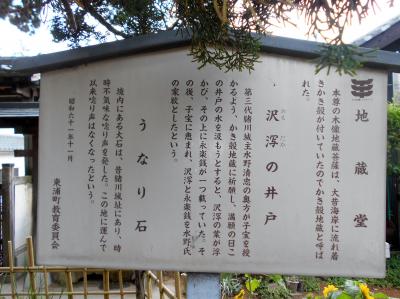 地蔵堂
本尊の木像地蔵菩薩は、大昔海岸に流れ着
きかき殻が付いていたのでかき殻地蔵と呼ば
れた。
沢瀉の井戸
おも だか
第三代緒川城主水野清忠の奥方が子宝を授
かるよう、かき殻地蔵に祈願し、満願の日こ
の井戸の水を汲もうとすると、沢瀉の葉が浮
かび、その上に永楽銭が一つ載っていた。そ
の後、子宝に恵まれ、沢瀉と永楽銭を水野氏
の家紋としたという。
うなり石
境内にある大石は、昔緒川城址にあり、時
時不気味な唸り声を発した。この地に運んで
以来唸り声はなくなったという。
昭和六十一年十一月
東浦町教育委員会